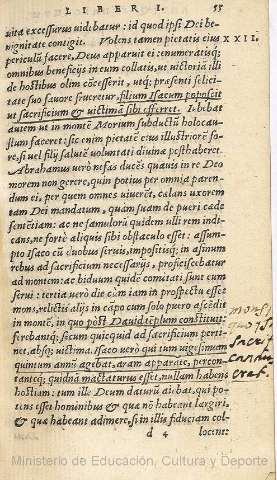 LIBER I. 55
vita excessurus uidebatur: id quod ipsi Dei be-
nignitate contigit. Volens tamen pietatis eius XXII.
periculũ facere, Deus apparuit ei: enumeratisq;
omnibus beneficijs in eum collatis, ut uictoriã illi
de hostibus olim cõcesserit, utq; præsenti felici-
tate suo fauore frueretur, filium Isacum poposcit
ut sacrificium & uictimã sibi offerret. Iubebat
autem ut in montẽ Morium subductũ holocau-
stum faceret: sic enim pietatẽ eius illustriorẽ fo-
re, si uel filij salutẽ voluntati diuinæ posthaberet.
Abrahamus uerò nefas ducẽs quauis in re Deo
morem non gerere, quin potius per omnia paren-
dum ei, per quem omnes uiuerẽt, celans uxorem
tam Dei mandatum, quam suam de pueri cæde
sentẽtiam: ac ne famulorũ quidem ulli rem indi-
cans, ne fortè aliquis sibi obstaculo esset: assum-
pto Isaco cũ duobus seruis, impositisq; in asinum
rebus ad sacrificium necessarijs, proficiscebatur
ad montem: ac biduum quidẽ comitati sunt eum
serui: tertia uerò die cùm iam in prospectu esset
mons, relictis alijs in capo cum solo puero ascẽdit
in montẽ, in quo pòst Dauid tẽplum constituit:
ferebantq; secum quicquid ad sacrificium perti-
net, absq; uictima. Isaco uerò qui tum uigesimum
quintum annũ agebat, aram apparãte, percon-
tanteq; quidnã mactaturus esset, nullam habens
hostiam: tum ille Deum daturũ aibat, qui po-
tens esset hominibus & quæ nõ habeant largiri,
& quæ habeant adimere, si in illis fiduciam col-
d 4 locent:
mons
quo Isa
sacrifi
candus
erat.
Ministerio de Educación, Cultura y Deporte